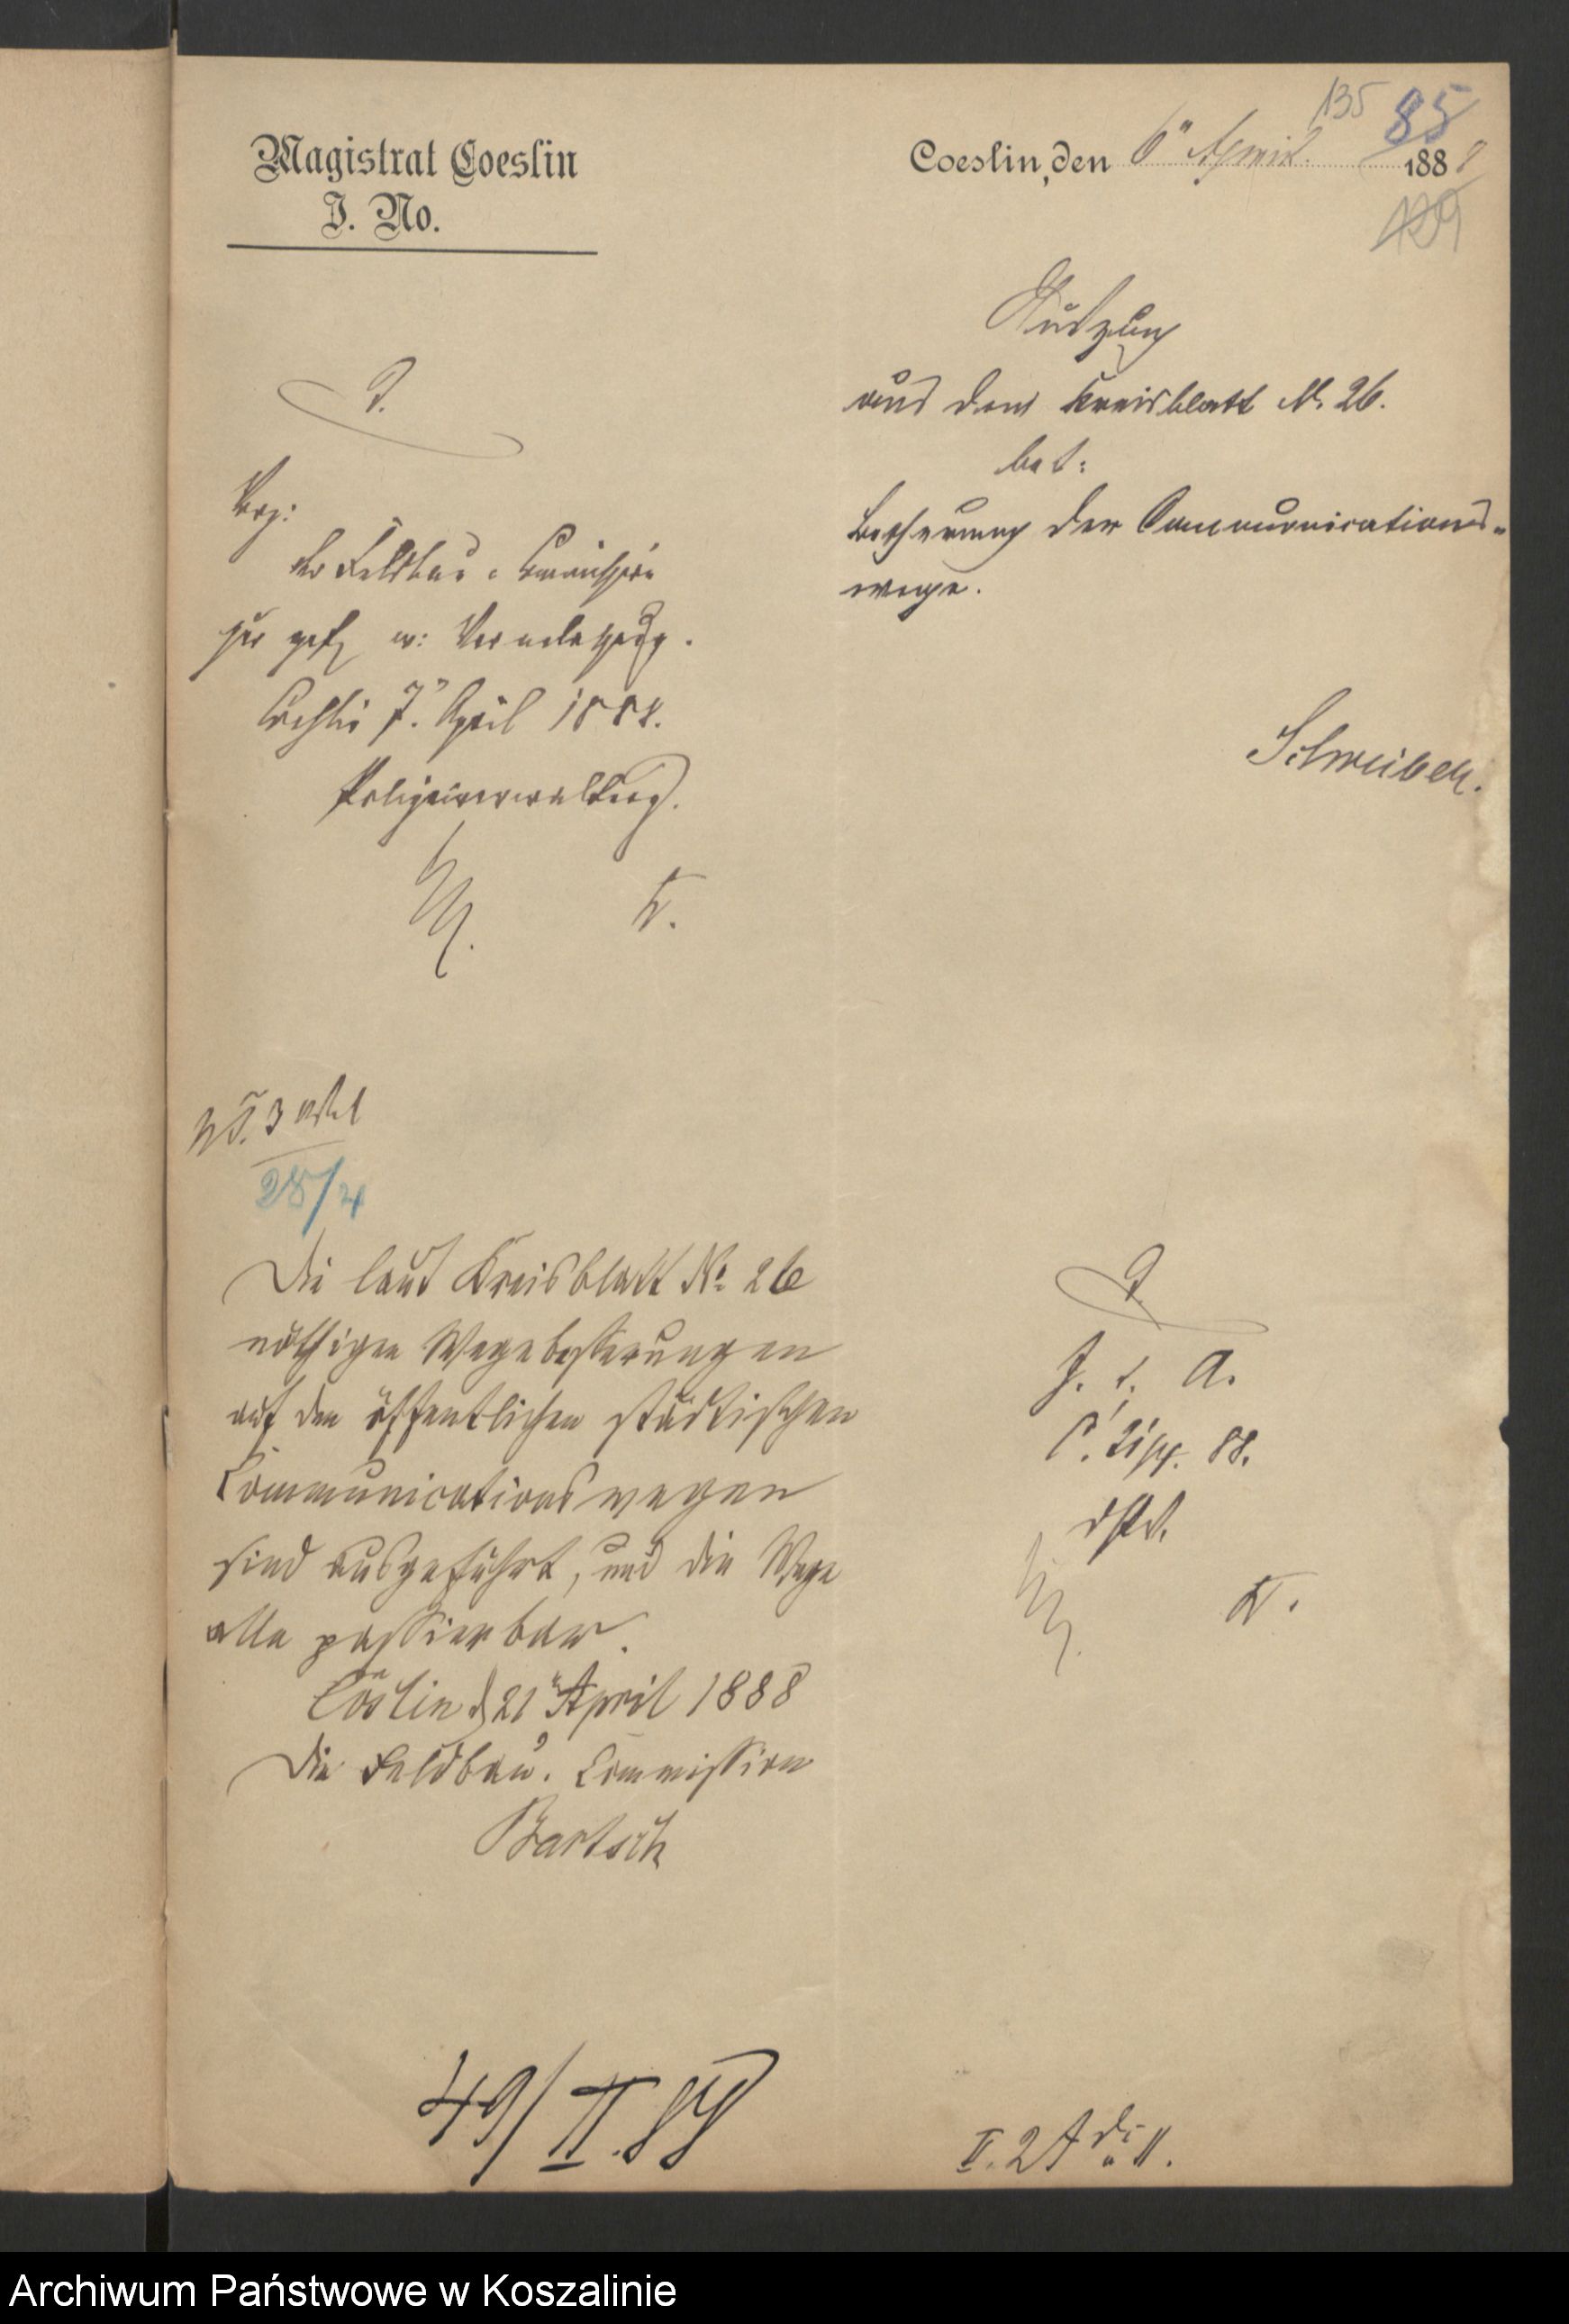 135 85
Magistrat Coeslin
J. No.
Coeslin, den 6" April 1888
129
Auszug
aus dem Kreisblatt No. 26.
bet:
Besserung der Communications-
wege.
Schreiber.
Feldbau-Commission
zur gefl. w: Veranlassung.
Coeslin 7" April 1888.
Polizeiverwaltung.
28/4
Die laut Kreisblatt No 26
nöthigen Wegebesserungen
auf den öffentlichen städtischen
Communicationswegen
sind ausgeführt, und die Wege
alle passierbar.
Cöslin d 21 April 1888
Die Feldbau-Commission
Bartsch
J. d. A.
C. 21/4. 88.
49/II.88